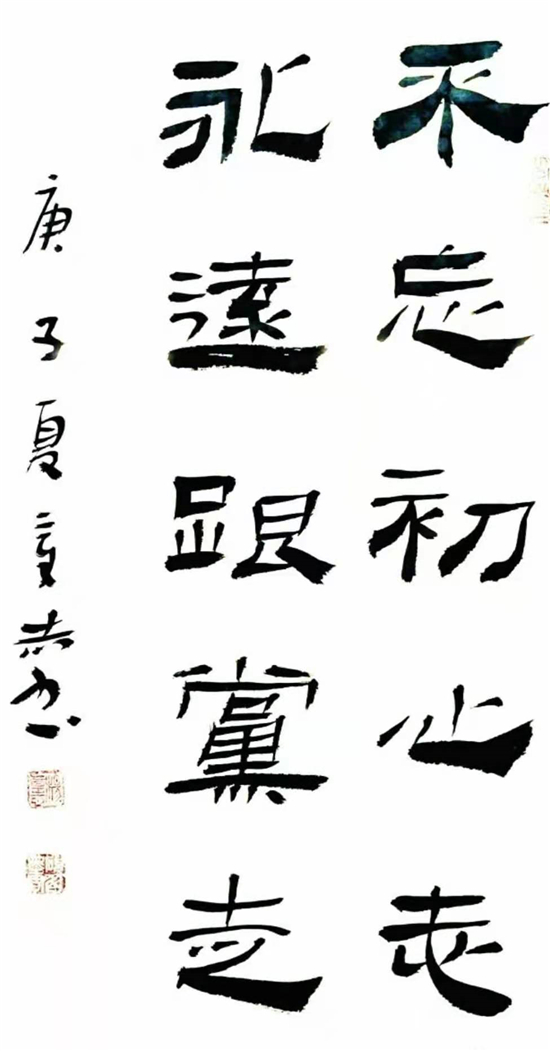 不忘初心志
永遠跟黨走
庚子夏